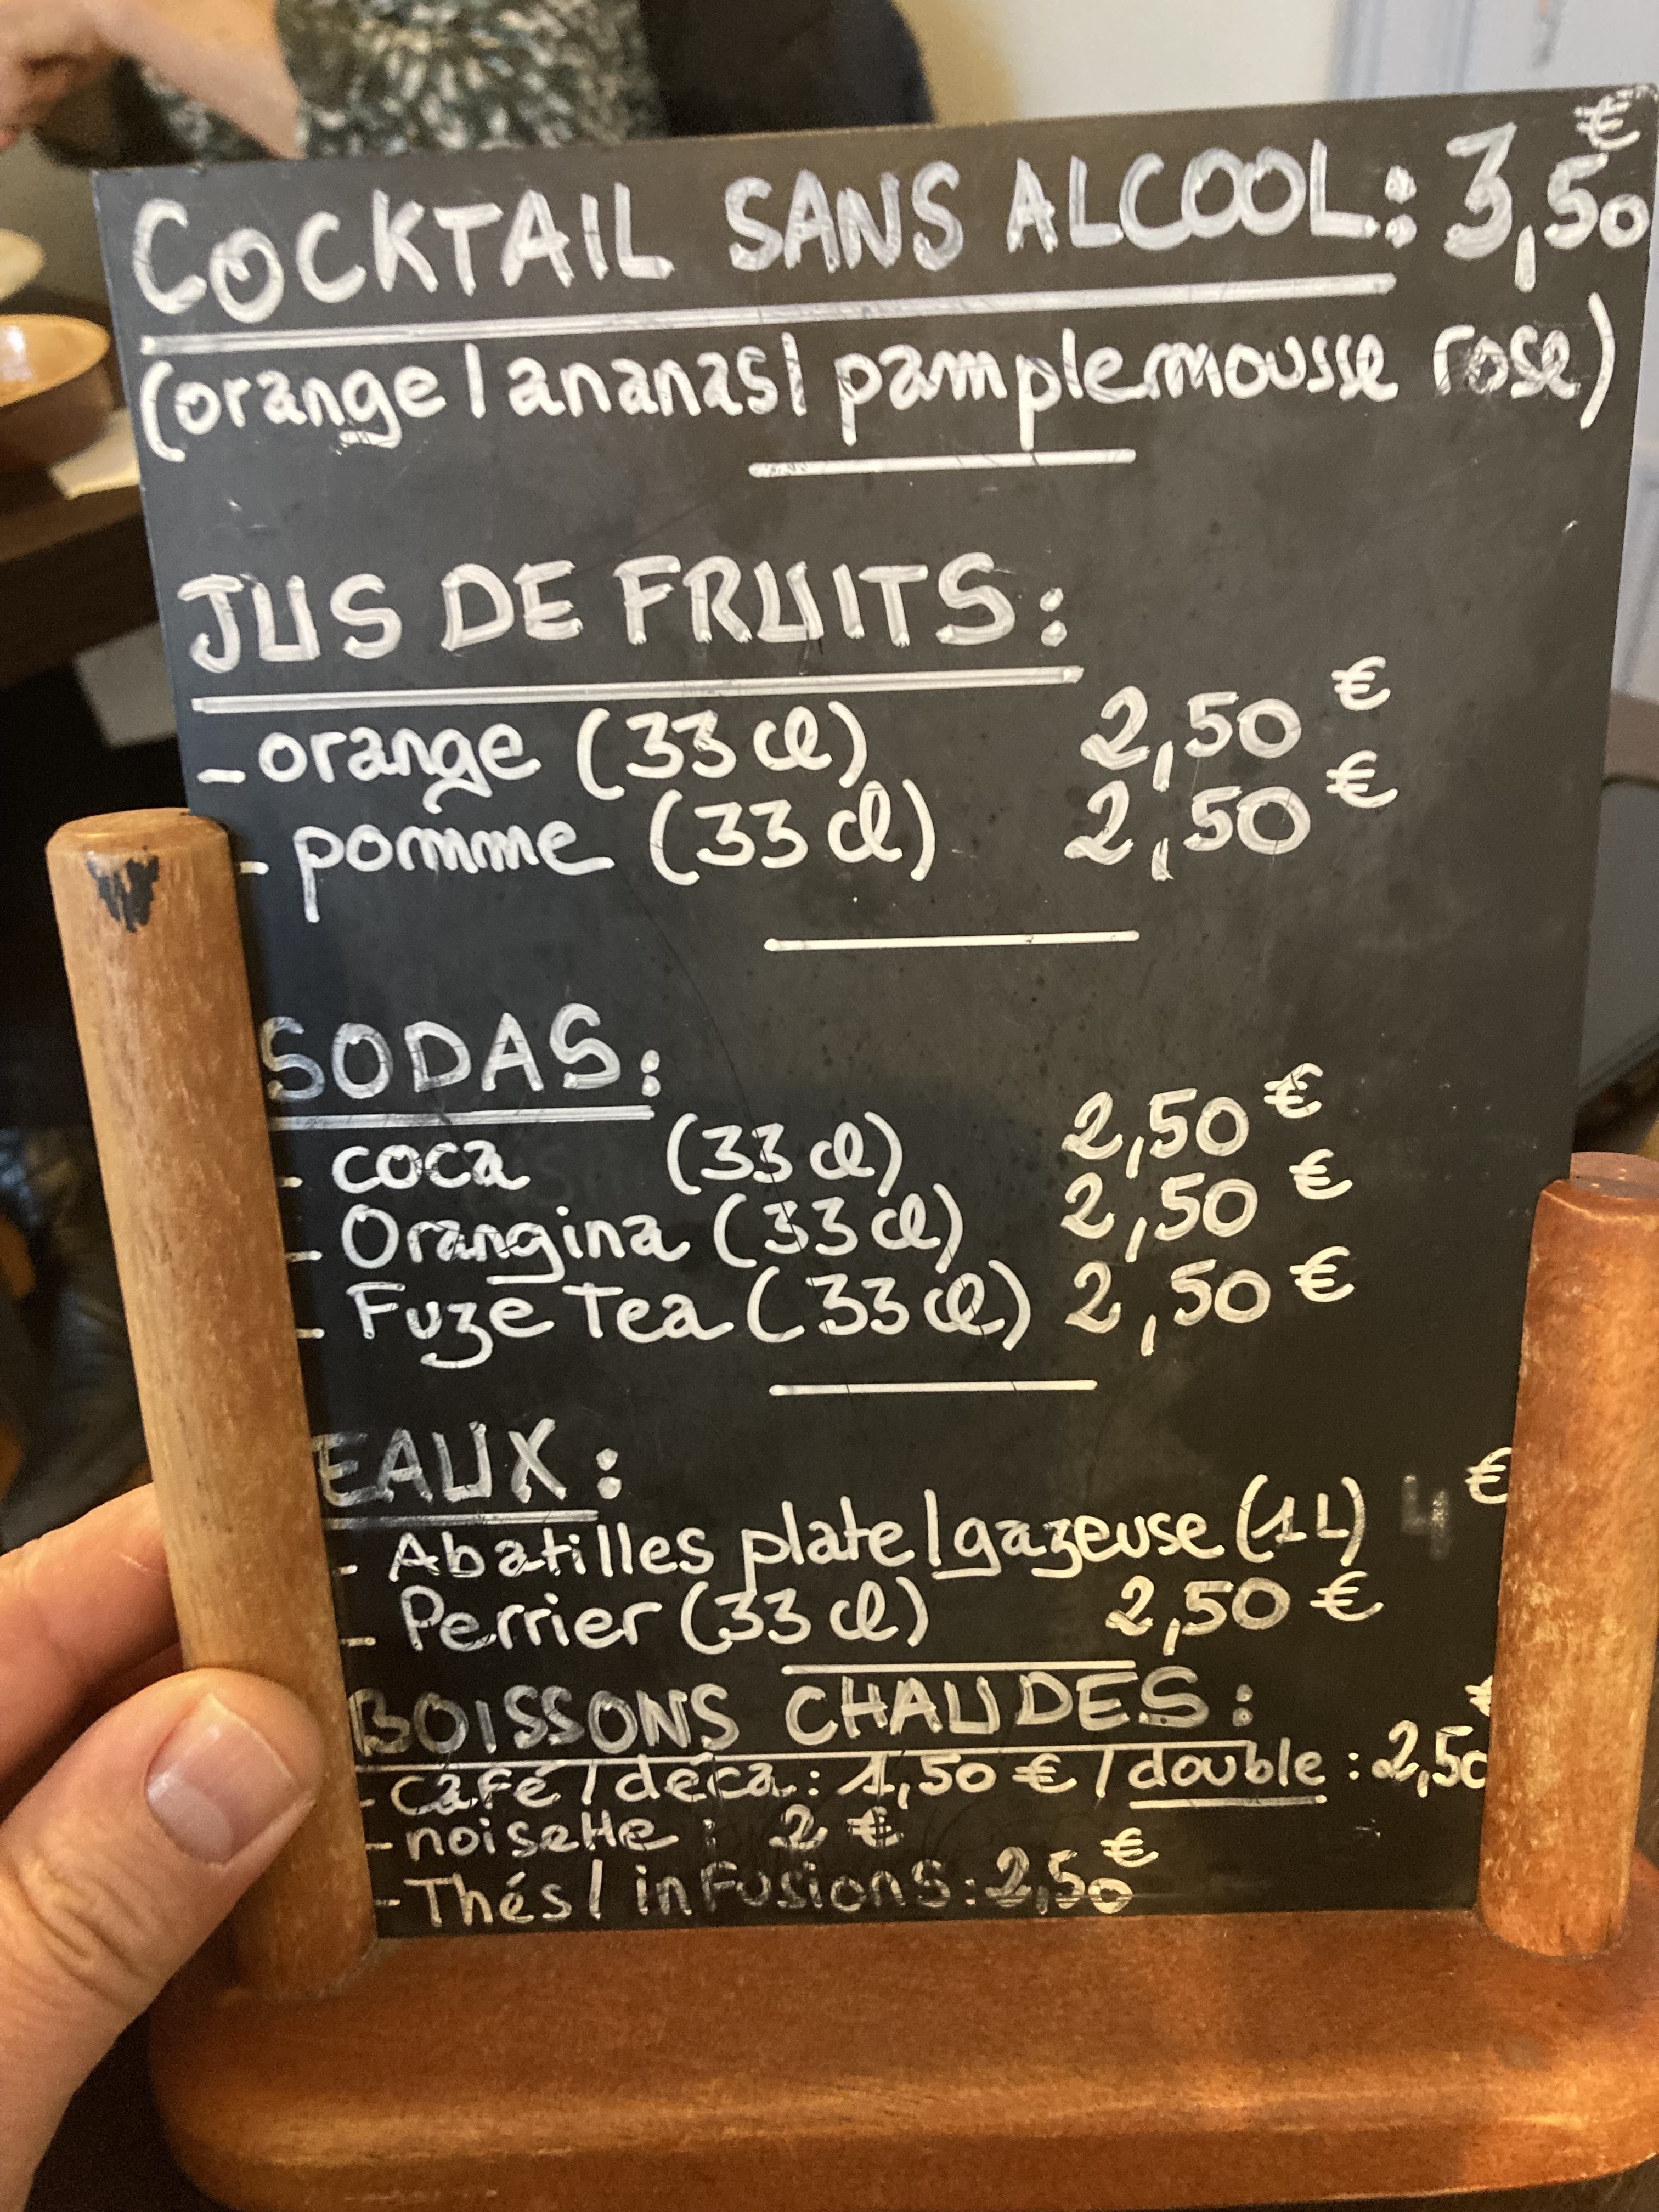 COCKTAIL SANS ALCOOL: 3,50€
(orange / ananas / pamplemousse rose)
JUS DE FRUITS:
- orange (33 cl) 2,50 €
- pomme (33 cl) 2,50 €
SODAS:
- coca (33 cl) 2,50 €
- Orangina (33 cl) 2,50 €
- Fuze Tea (33 cl) 2,50 €
EAUX:
- Abatilles plate / gazeuse (1L) 4 €
- Perrier (33 cl) 2,50 €
BOISSONS CHAUDES:
- café / déca: 1,50 € / double: 2,50 €
- noisette: 2 €
- Thés / infusions: 2,50 €